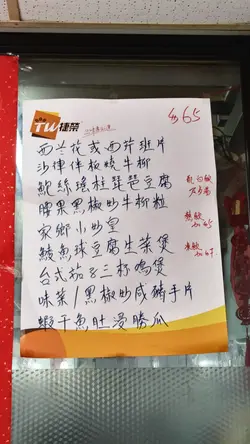 TW捷榮
$65
西兰花或西芹班片
沙律伴板燒牛柳
鮑絲瑤柱琵琶豆腐
腰果黑椒炒牛柳粒
家鄉小炒皇
鯪魚球豆腐生菜煲
台式茄子三杯鸡煲
味菜/黑椒炒咸豬手片
蝦干魚肚浸勝瓜